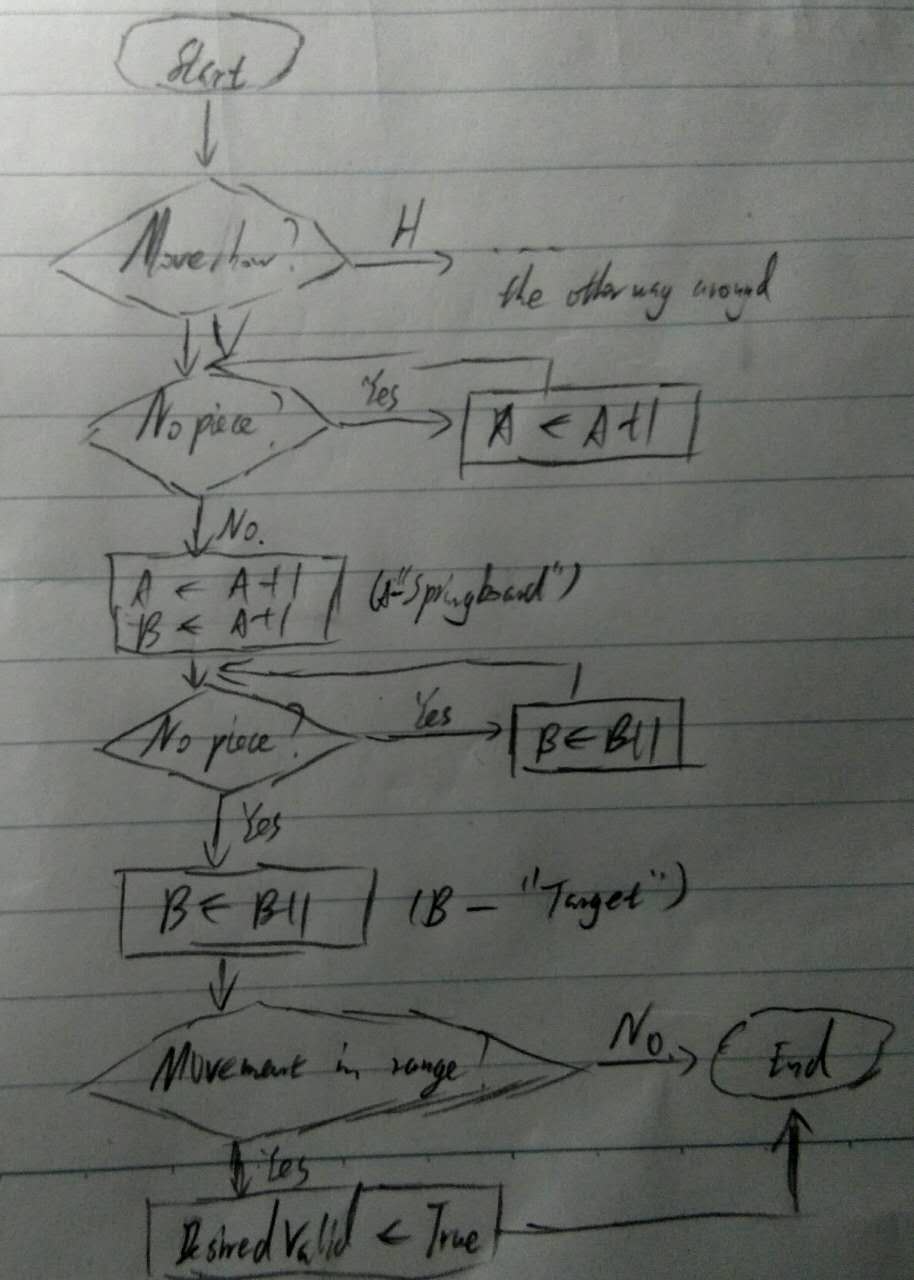 Start
Move how?
H
....
the other way around
No piece?
Yes
A ← A+1
No.
A ← A+1
B ← A+1
(A-"Springboard")
No piece?
Yes
B ← B+1
Yes
B ← B+1
(B - "Target")
Movement in range?
No.
End
Yes
DesiredValid ← True